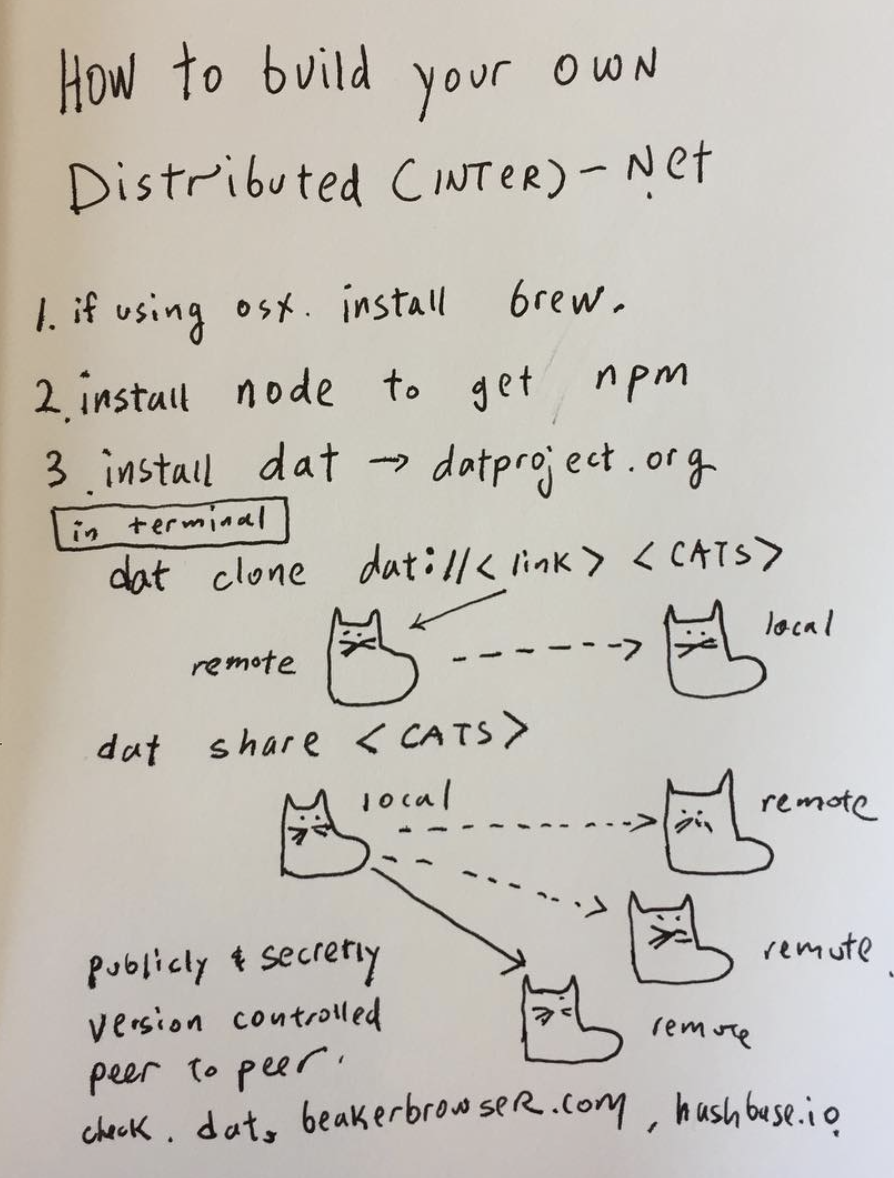 How to build your own
Distributed (INTER)-Net
1. if using osx. install brew.
2. install node to get npm
3. install dat → datproject.org
in terminal
dat clone dat://<link> <CATS>
remote
local
dat share <CATS>
local
remote
remote
remote
publicly & secretly
version controlled
peer to peer.
check. dat, beakerbrowser.com, hashbase.io